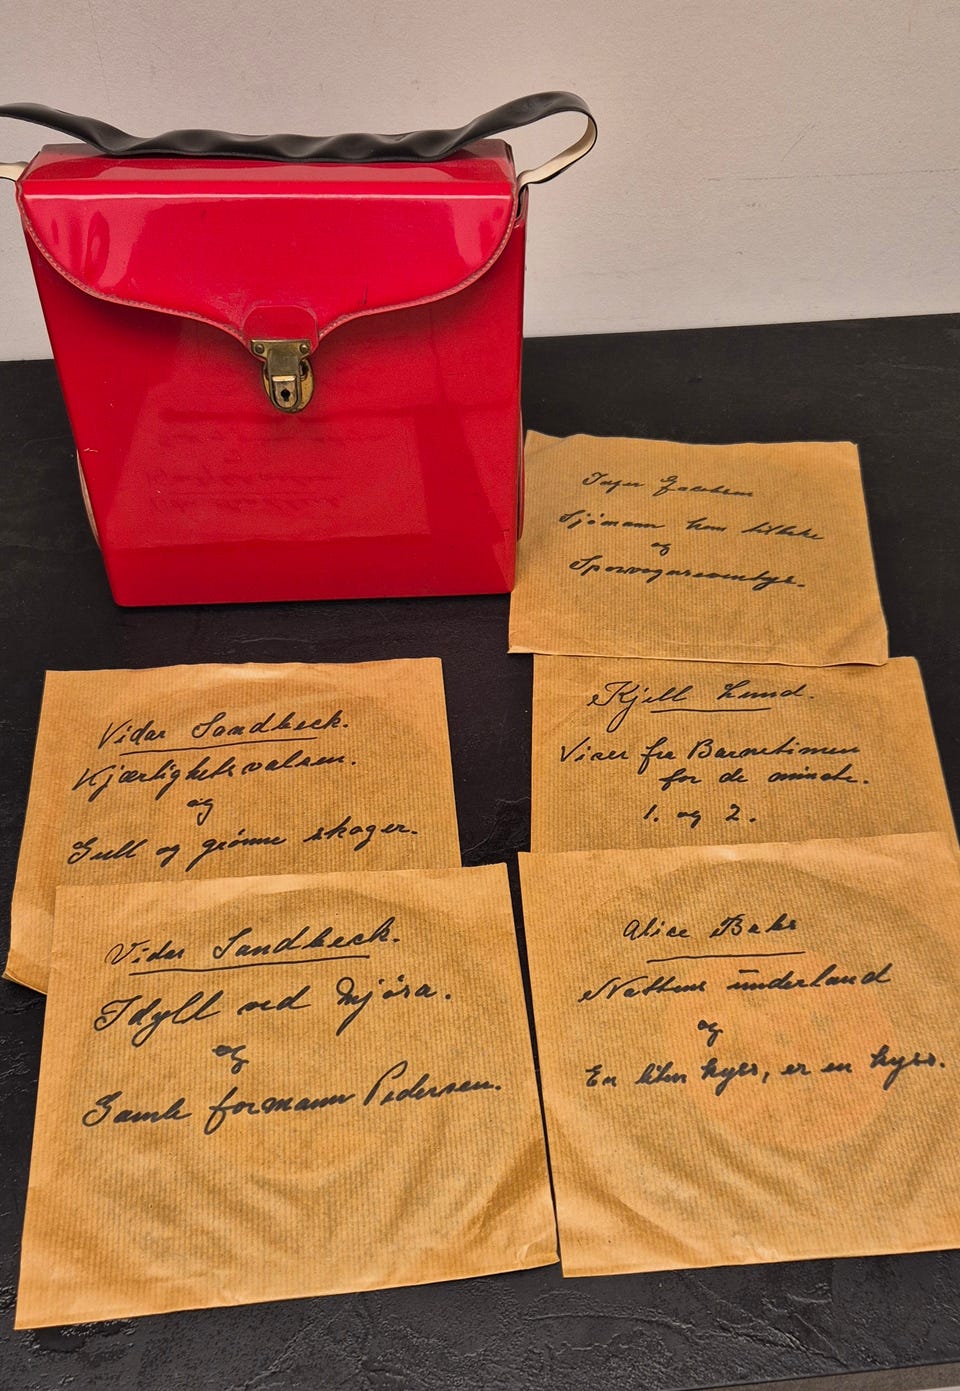 Inger Jacobsen
Sjømann kom tilbake
og
Sporvognseventyr.
Vidar Sandbeck.
Kjærlighetsvalsen.
og
Gull og grønne skoger.
Kjell Lund.
Viser fra Barnetimen
for de minste.
1. og 2.
Vidar Sandbeck.
Idyll ved Mjøsa.
og
Gamle formann Pedersen.
Alice Babs
Nattens underland
og
En liten kyss, er en kyss.